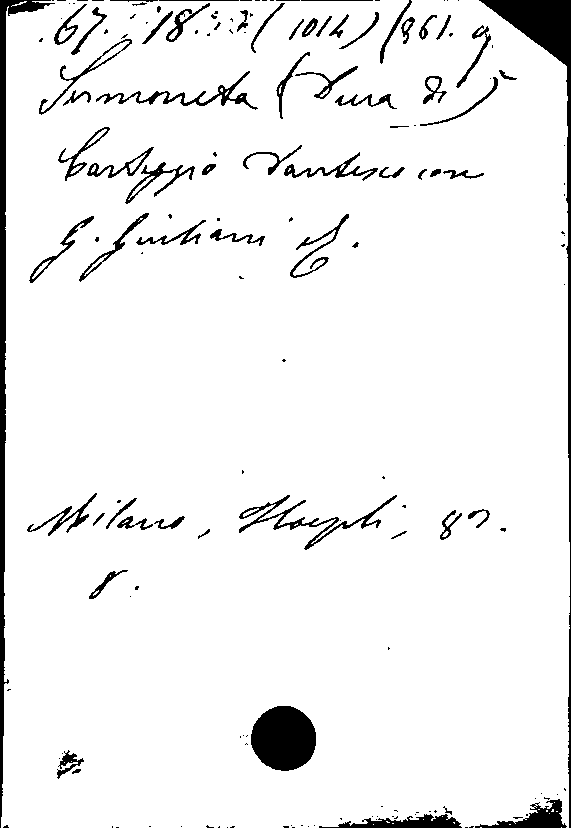 67. 18. (1014) (861. g
Sermoneta (Duca di)
Carteggio dantesco con
G. Giuliani
Milano, Hoepli, 83.
8.